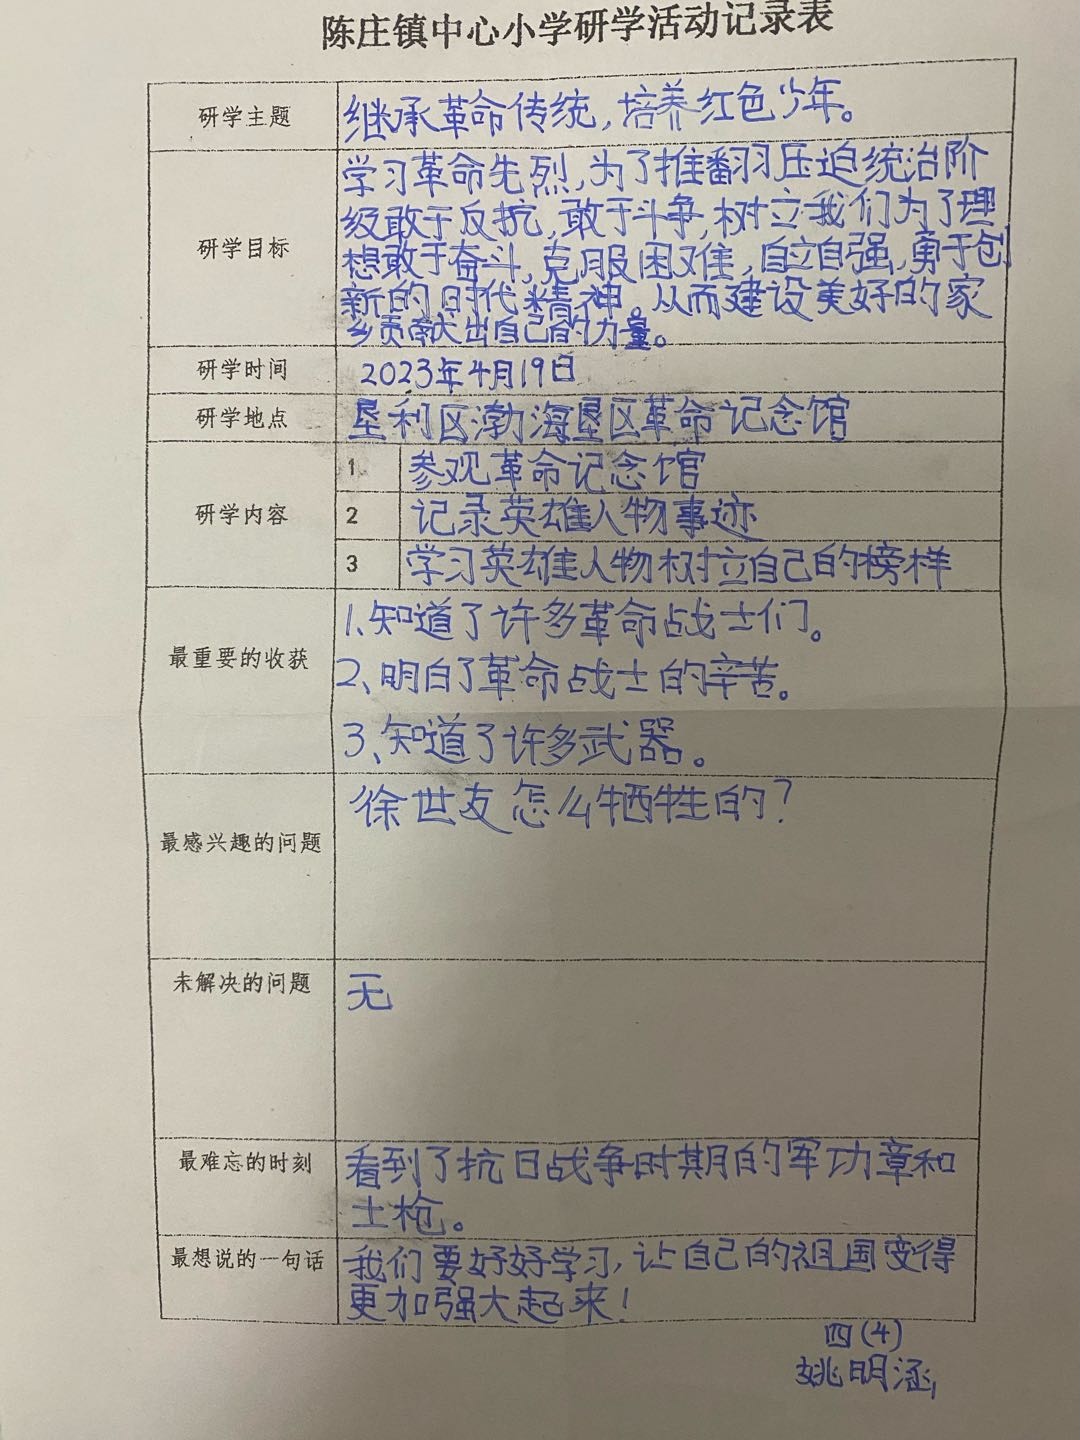 陈庄镇中心小学研学活动记录表
研学主题
继承革命传统,培养红色少年。
研学目标
学习革命先烈,为了推翻压迫统治阶
级敢于反抗,敢于斗争,树立我们为了理
想敢于奋斗,克服困难,自立自强,勇于创
新的时代精神。从而建设美好的家
乡贡献出自己的力量。
研学时间
2023年4月19日
研学地点
垦利区渤海垦区革命记念馆
研学内容
1 参观革命记念馆
2 记录英雄人物事迹
3 学习英雄人物树立自己的榜样
最重要的收获
1、知道了许多革命战士们。
2、明白了革命战士的辛苦。
3、知道了许多武器。
最感兴趣的问题
徐世友怎么牺牲的?
未解决的问题
无
最难忘的时刻
看到了抗日战争时期的军功章和
土枪。
最想说的一句话
我们要好好学习,让自己的祖国变得
更加强大起来!
四(4)
姚明涵